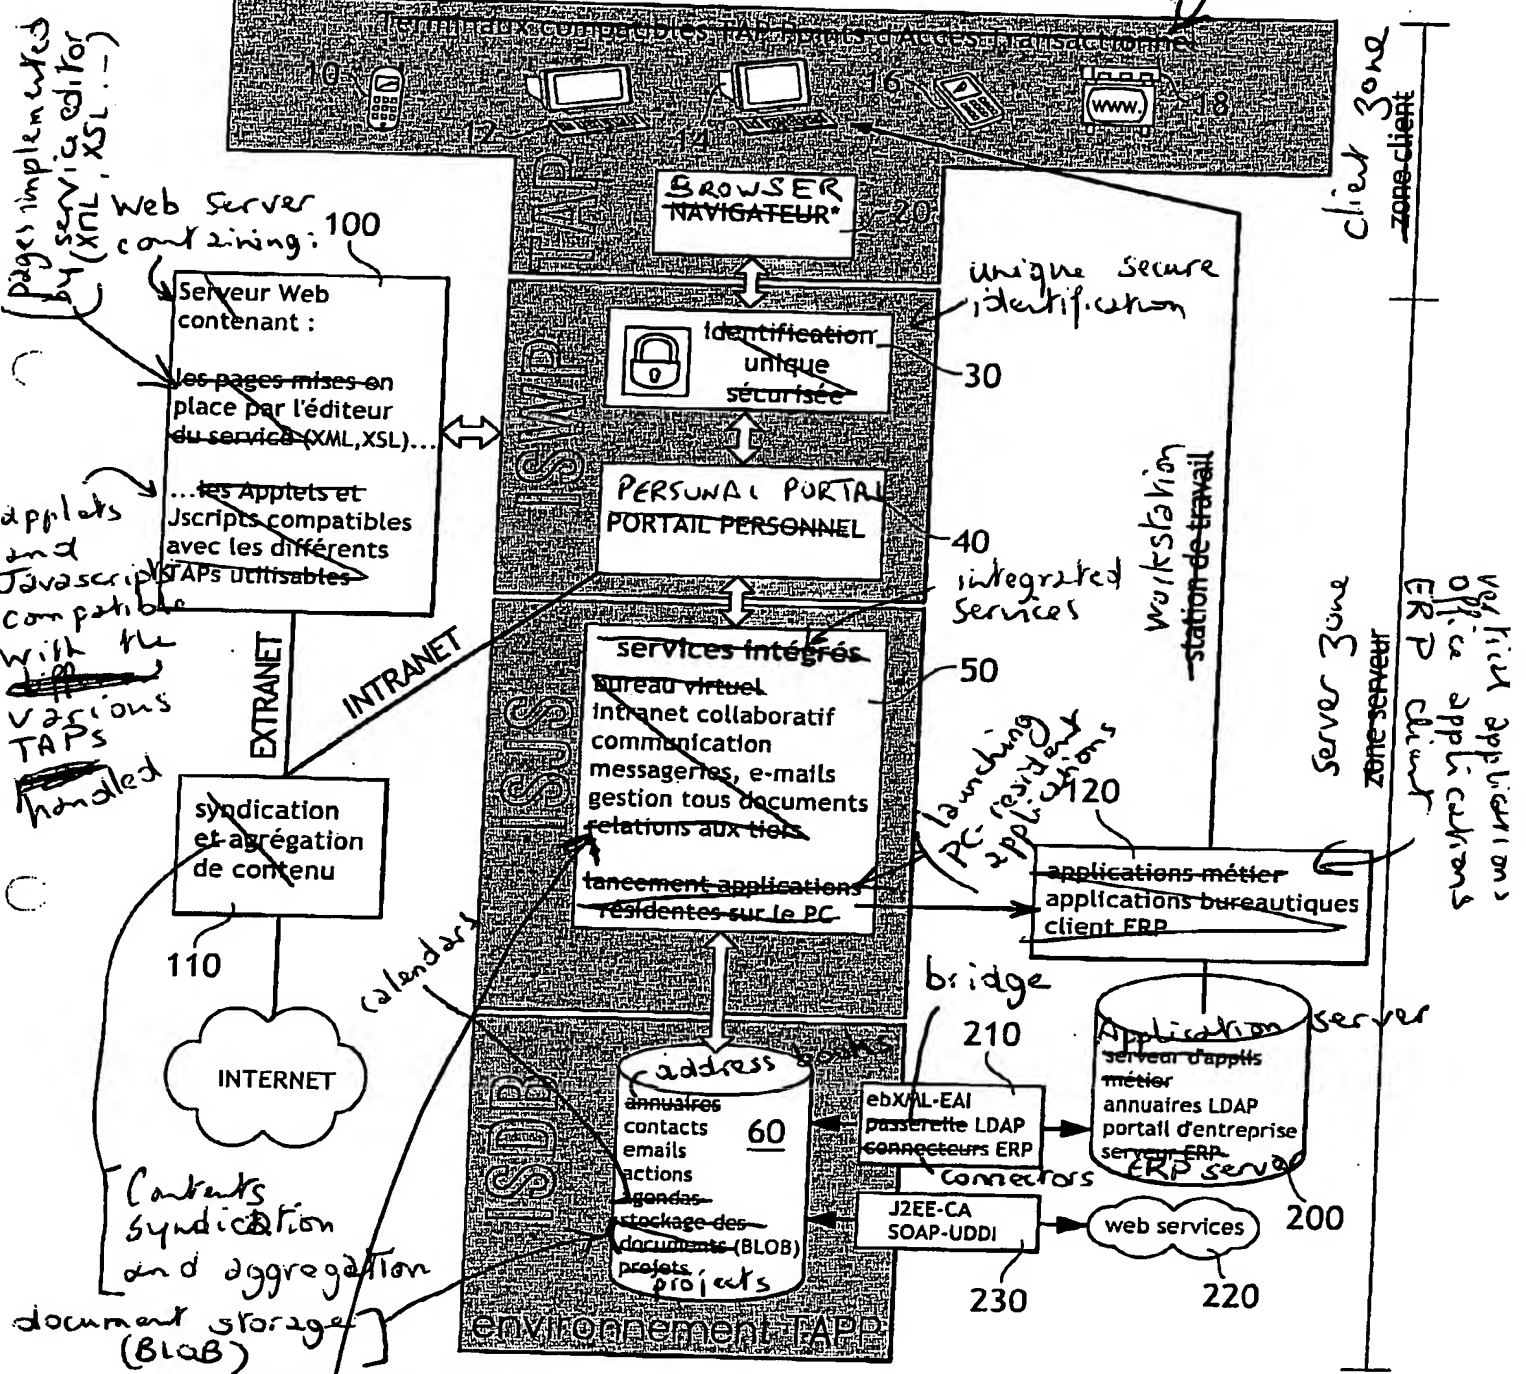 Terminaux compatibles TAP Points d'Accès Transactionnel
10
12
14
16
www.
18
TAP
BROWSER
NAVIGATEUR*
20
client zone
zone client
pages implemented
by service editor
(XML, XSL...)
Web Server
containing:
100
Serveur Web
contenant :
les pages mises en
place par l'éditeur
du service (XML,XSL)...
...les Applets et
Jscripts compatibles
avec les différents
TAPs utilisables
applets
and
Javascripts
compatible
with the
various
TAPs
handled
unique secure
identification
identification
unique
sécurisée
30
ISWP
PERSONAL PORTAL
PORTAIL PERSONNEL
40
integrated
services
workstation
station de travail
EXTRANET
INTRANET
ISUS
services intégrés
bureau virtuel
intranet collaboratif
communication
messageries, e-mails
gestion tous documents
relations aux tiers
lancement applications
résidentes sur le PC
50
launching
PC-resident
applications
120
applications métier
applications bureautiques
client ERP
server zone
zone serveur
vertical applications
office applications
ERP client
syndication
et agrégation
de contenu
110
INTERNET
calendars
Contents
syndication
and aggregation
document storage
(BLOB)
ISDB
address books
annuaires
contacts
emails
actions
agendas
stockage des
documents (BLOB)
projets
projects
60
environnement TAPP
bridge
210
ebXML-EAI
passerelle LDAP
connecteurs ERP
connectors
J2EE-CA
SOAP-UDDI
230
Application server
serveur d'applis
métier
annuaires LDAP
portail d'entreprise
serveur ERP
ERP server
200
web services
220